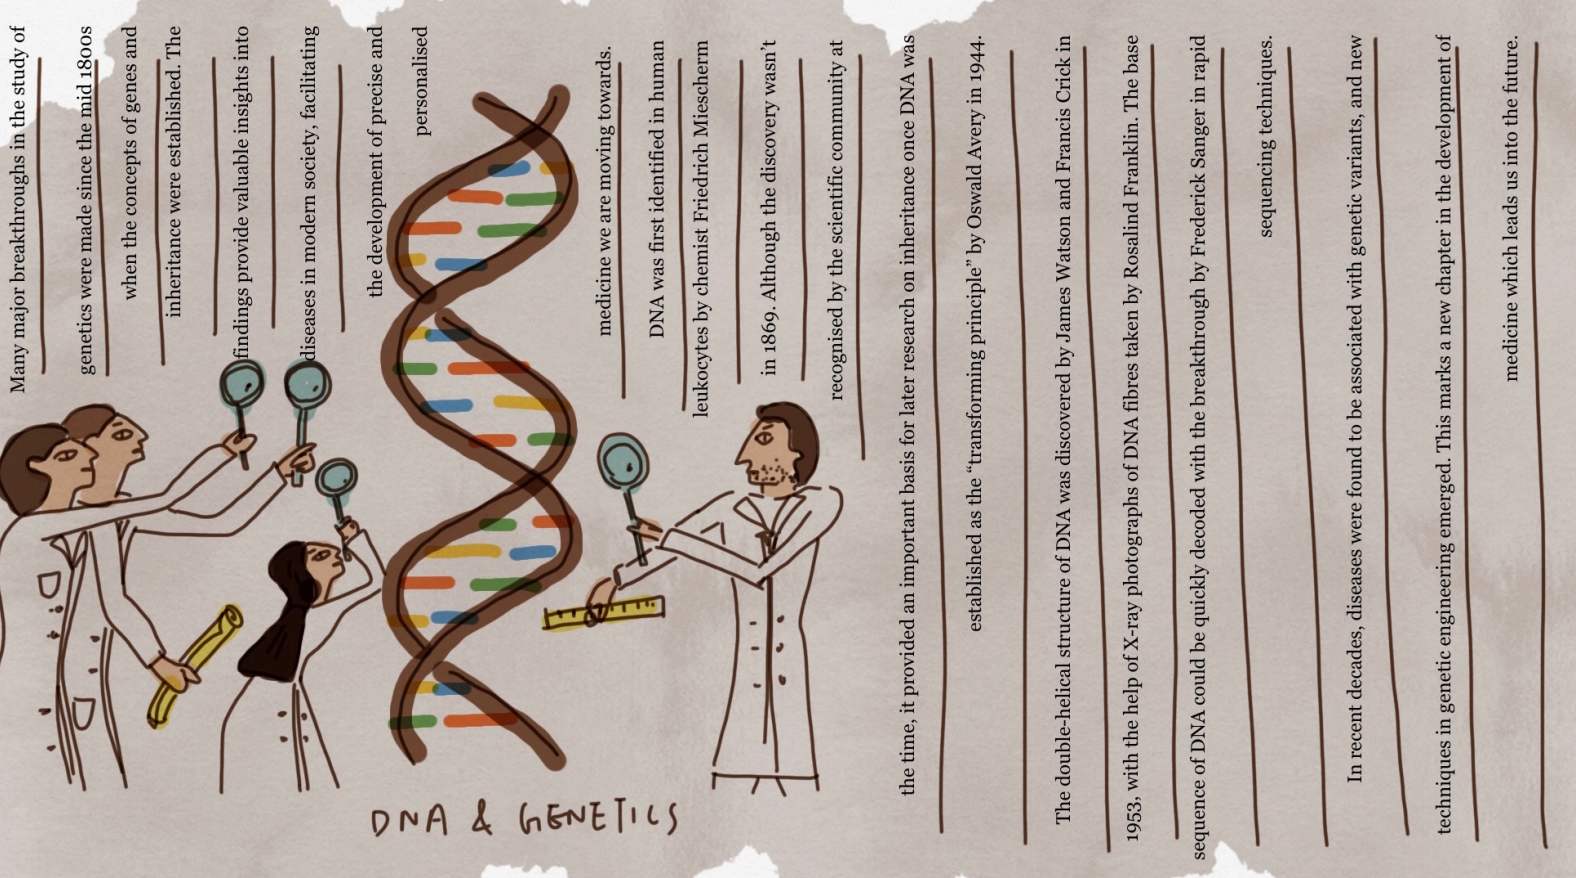 Many major breakthroughs in the study of
genetics were made since the mid 1800s
when the concepts of genes and
inheritance were established. The
findings provide valuable insights into
diseases in modern society, facilitating
the development of precise and
personalised
medicine we are moving towards.
DNA was first identified in human
leukocytes by chemist Friedrich Miescherm
in 1869. Although the discovery wasn't
recognised by the scientific community at
the time, it provided an important basis for later research on inheritance once DNA was
established as the “transforming principle” by Oswald Avery in 1944.
The double-helical structure of DNA was discovered by James Watson and Francis Crick in
1953, with the help of X-ray photographs of DNA fibres taken by Rosalind Franklin. The base
sequence of DNA could be quickly decoded with the breakthrough by Frederick Sanger in rapid
sequencing techniques.
In recent decades, diseases were found to be associated with genetic variants, and new
techniques in genetic engineering emerged. This marks a new chapter in the development of
medicine which leads us into the future.
DNA & GENETICS